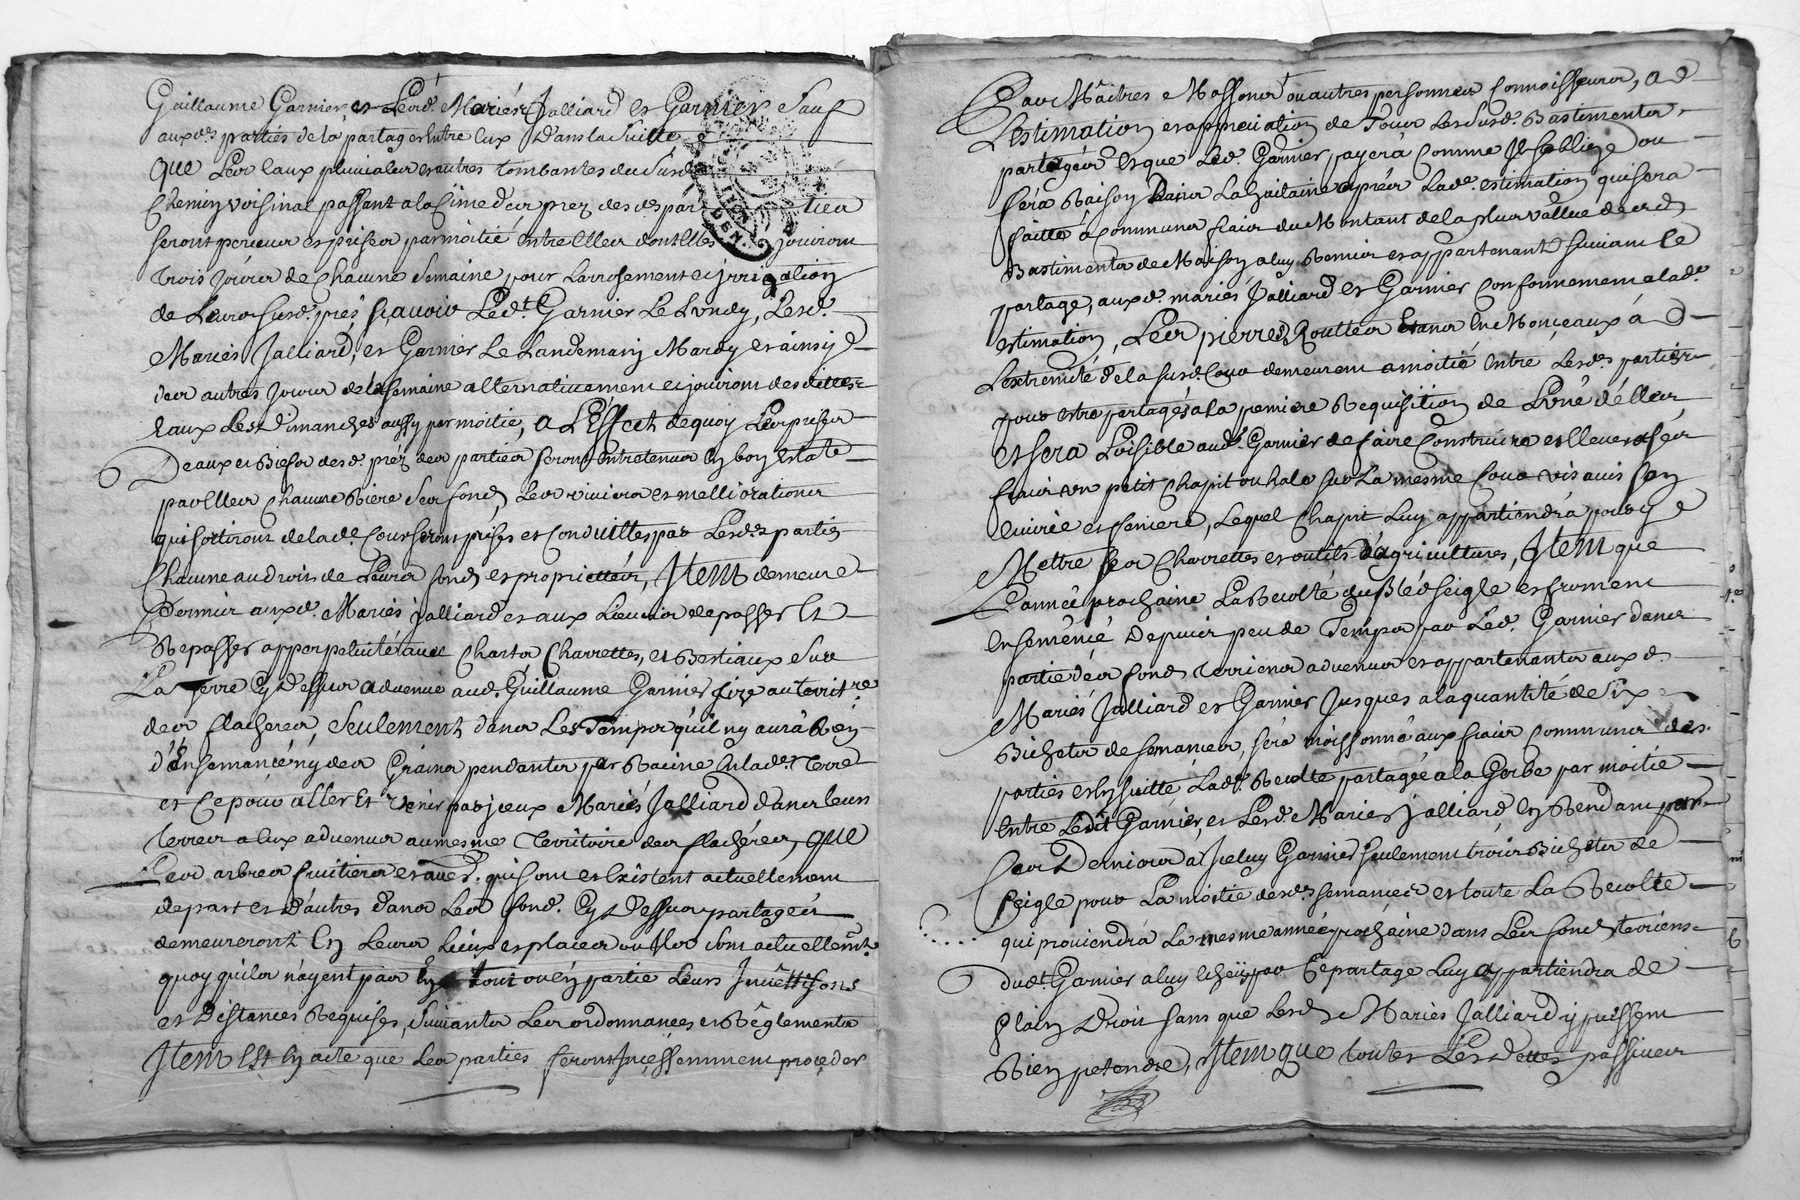 Guillaume Garnier, et Lesd. Mariés Jalliard et Garnier Sauf
auxd. parties de la partager Entre Eux Dans la Suitte
que Les Eaux pluviales et autres tombantes du Susd.
Chemin voisinal passant a la Cime des prez desd. par ties
seront perceues et prises par moitié entre Elles dont Elles jouiront
trois jours de Chacune Semaine pour Larrosement et jrrigation
de Leurs susd. prés sçavoir Led.t Garnier Le Lundy, Lesd.
Mariés Jalliard, et Garnier Le Landemain Mardy et ainsi
des autres jours de la semaine alternativement et jouiront desdittes
Eaux Les Dimanches aussy par moitié, a L'Effect de quoy Les prises
D'eaux et Biefs desd. préz des parties seront Entretenus En bon Estat
par Elles Chacune Riere Ses fonds Les
qui sortiront de lad. Cour seront prises et Conduittes par Lesd. parties
Chacune au droit de Leurs fonds et proprietés, Item demeure
Permis auxd. Mariés Jalliard et aux Leurs de passer Et
Repasser a perpetuité avec Chars Charrettes, et Bestiaux Sur
La Terre Cy Dessus advenue aud. Guillaume Garnier size au Territ.re
des flacheres, Seulement dans Les Temps qu'il ny aura Rien
d'Ensemancé ny des Grains pendants par Racine En lad. Terre
et Ce pour aller Et Venir par jceux Mariés Jalliard dans leurs
terres a Eux advenues au mesme Territoire des flachéres, que
Les arbres fruitiers et aud. qui sont et Existent actuellement
de part et D'autres dans Les fonds Cy Dessus partagés
demeureront En Leurs Lieux et places ou Ils sont actuellemt.
quoy qu'ils n'ayent pas En tout ou En partie Leurs
et Distances Requises, Suivant Les ordonnances et Réglements
Item Est En acte que Les parties feront Incessemment proceder
Par Maitres Massons ou autres personnes Connoisseurs, a
L'estimation et appreciation de Tous Les Susd. Bastiments
partagés et que Led. Garnier payera Comme Il s'oblige ou
fera Raison Dans La huitaine apréz Lade. estimation qui sera
faitte á Communs fraix du Montant de la plus vallue desd.
Bastiments de Maison a luy Remis et appartenants suivant Le
partage, auxd. mariés Jalliard et Garnier Conformement a lad.
estimation, Les pierres Routtes Estant En Monceaux á
L'extremité de la susd. Cour demeurent a moitié Entre Lesd. parties
pour estre partagés a la premiere Requisition de L'une d'elles,
Et sera Loisible aud. Garnier de faire Construire et Elever a ses
fraix un petit Chapit ou hale sur La mesme Cour vis avis son
Ecurie et feniere, Lequel Chapit Luy appartiendrá pour y
Mettre ses Charrettes et outils d'agricultures, Item que
L'année prochaine La Recolté du Bléd seigle et froment
Ensemencé Depuis peu de Temps par Led. Garnier dans
partie des fonds terriens advenus et appartenants auxd.
Mariés Jalliard et Garnier Jusques a la quantité de Six
Bichets de semances, sera moissonné aux fraix Communs des
parties et En suitte Lad. Recolte partagée a la Gerbe par moitié
Entre Ledit Garnier, et Lesd. Mariés Jalliard En Rendant par
Ces Derniers a Iceluy Garnier seulement trois Bichets de
seigle pour La moitié desd. semances et toute La Recolte
qui proviendrá La mesme année prochaine dans Les fonds terriens
dud.t Garnier a luy Echeüs par Ce partage Luy appartiendra de
Plain Droit sans que Lesd. Mariés Jalliard y puissent
Rien pretendre, Item que toutes Les Dettes passives